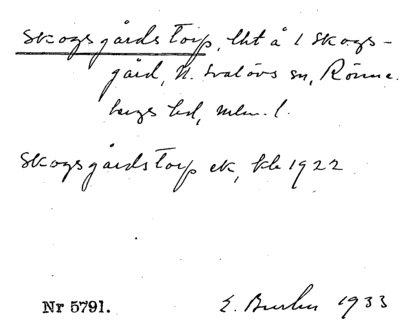 Skogsgårdstorp, lht å 1 Skogs-
gård, N. Svalövs sn, Rönne-
bergs hd, Mlm. l.
Skogsgårdstorp ek, kb 1922
Nr 5791.
E. 1933